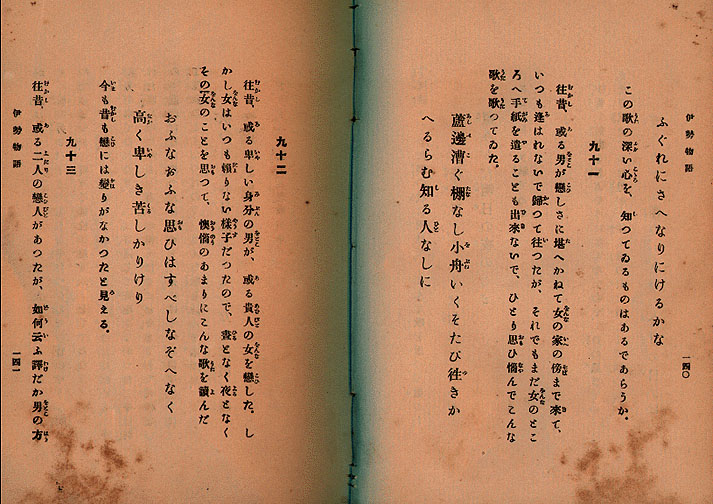 伊勢物語
一四〇
ふぐれにさへなりにけるかな
この歌の深い心を、知つてゐるものはあるであらうか。
九十一
往昔、或る男が戀しさに堪へかねて女の家の傍まで來て、
いつも逢はれないで歸つて往つたが、それでもまだ女のとこ
ろへ手紙を遣ることも出來ないで、ひとり思ひ惱んでこんな
歌を歌つてゐた。
蘆邊漕ぐ棚なし小舟いくそたび往きか
へるらむ知る人なしに
九十二
往昔、或る卑しい身分の男が、或る貴人の女を戀した。し
かし女はいつも賴りない樣子だつたので、晝となく夜となく
その女のことを思つて、懊惱のあまりにこんな歌を讀んだ
おふなおふな思ひはすべしなぞへなく
高く卑しき苦しかりけり
今も昔も戀には變りがなかつたと見える。
九十三
往昔、或る二人の戀人があつたが、如何云ふ譯だか男の方
伊勢物語
一四一